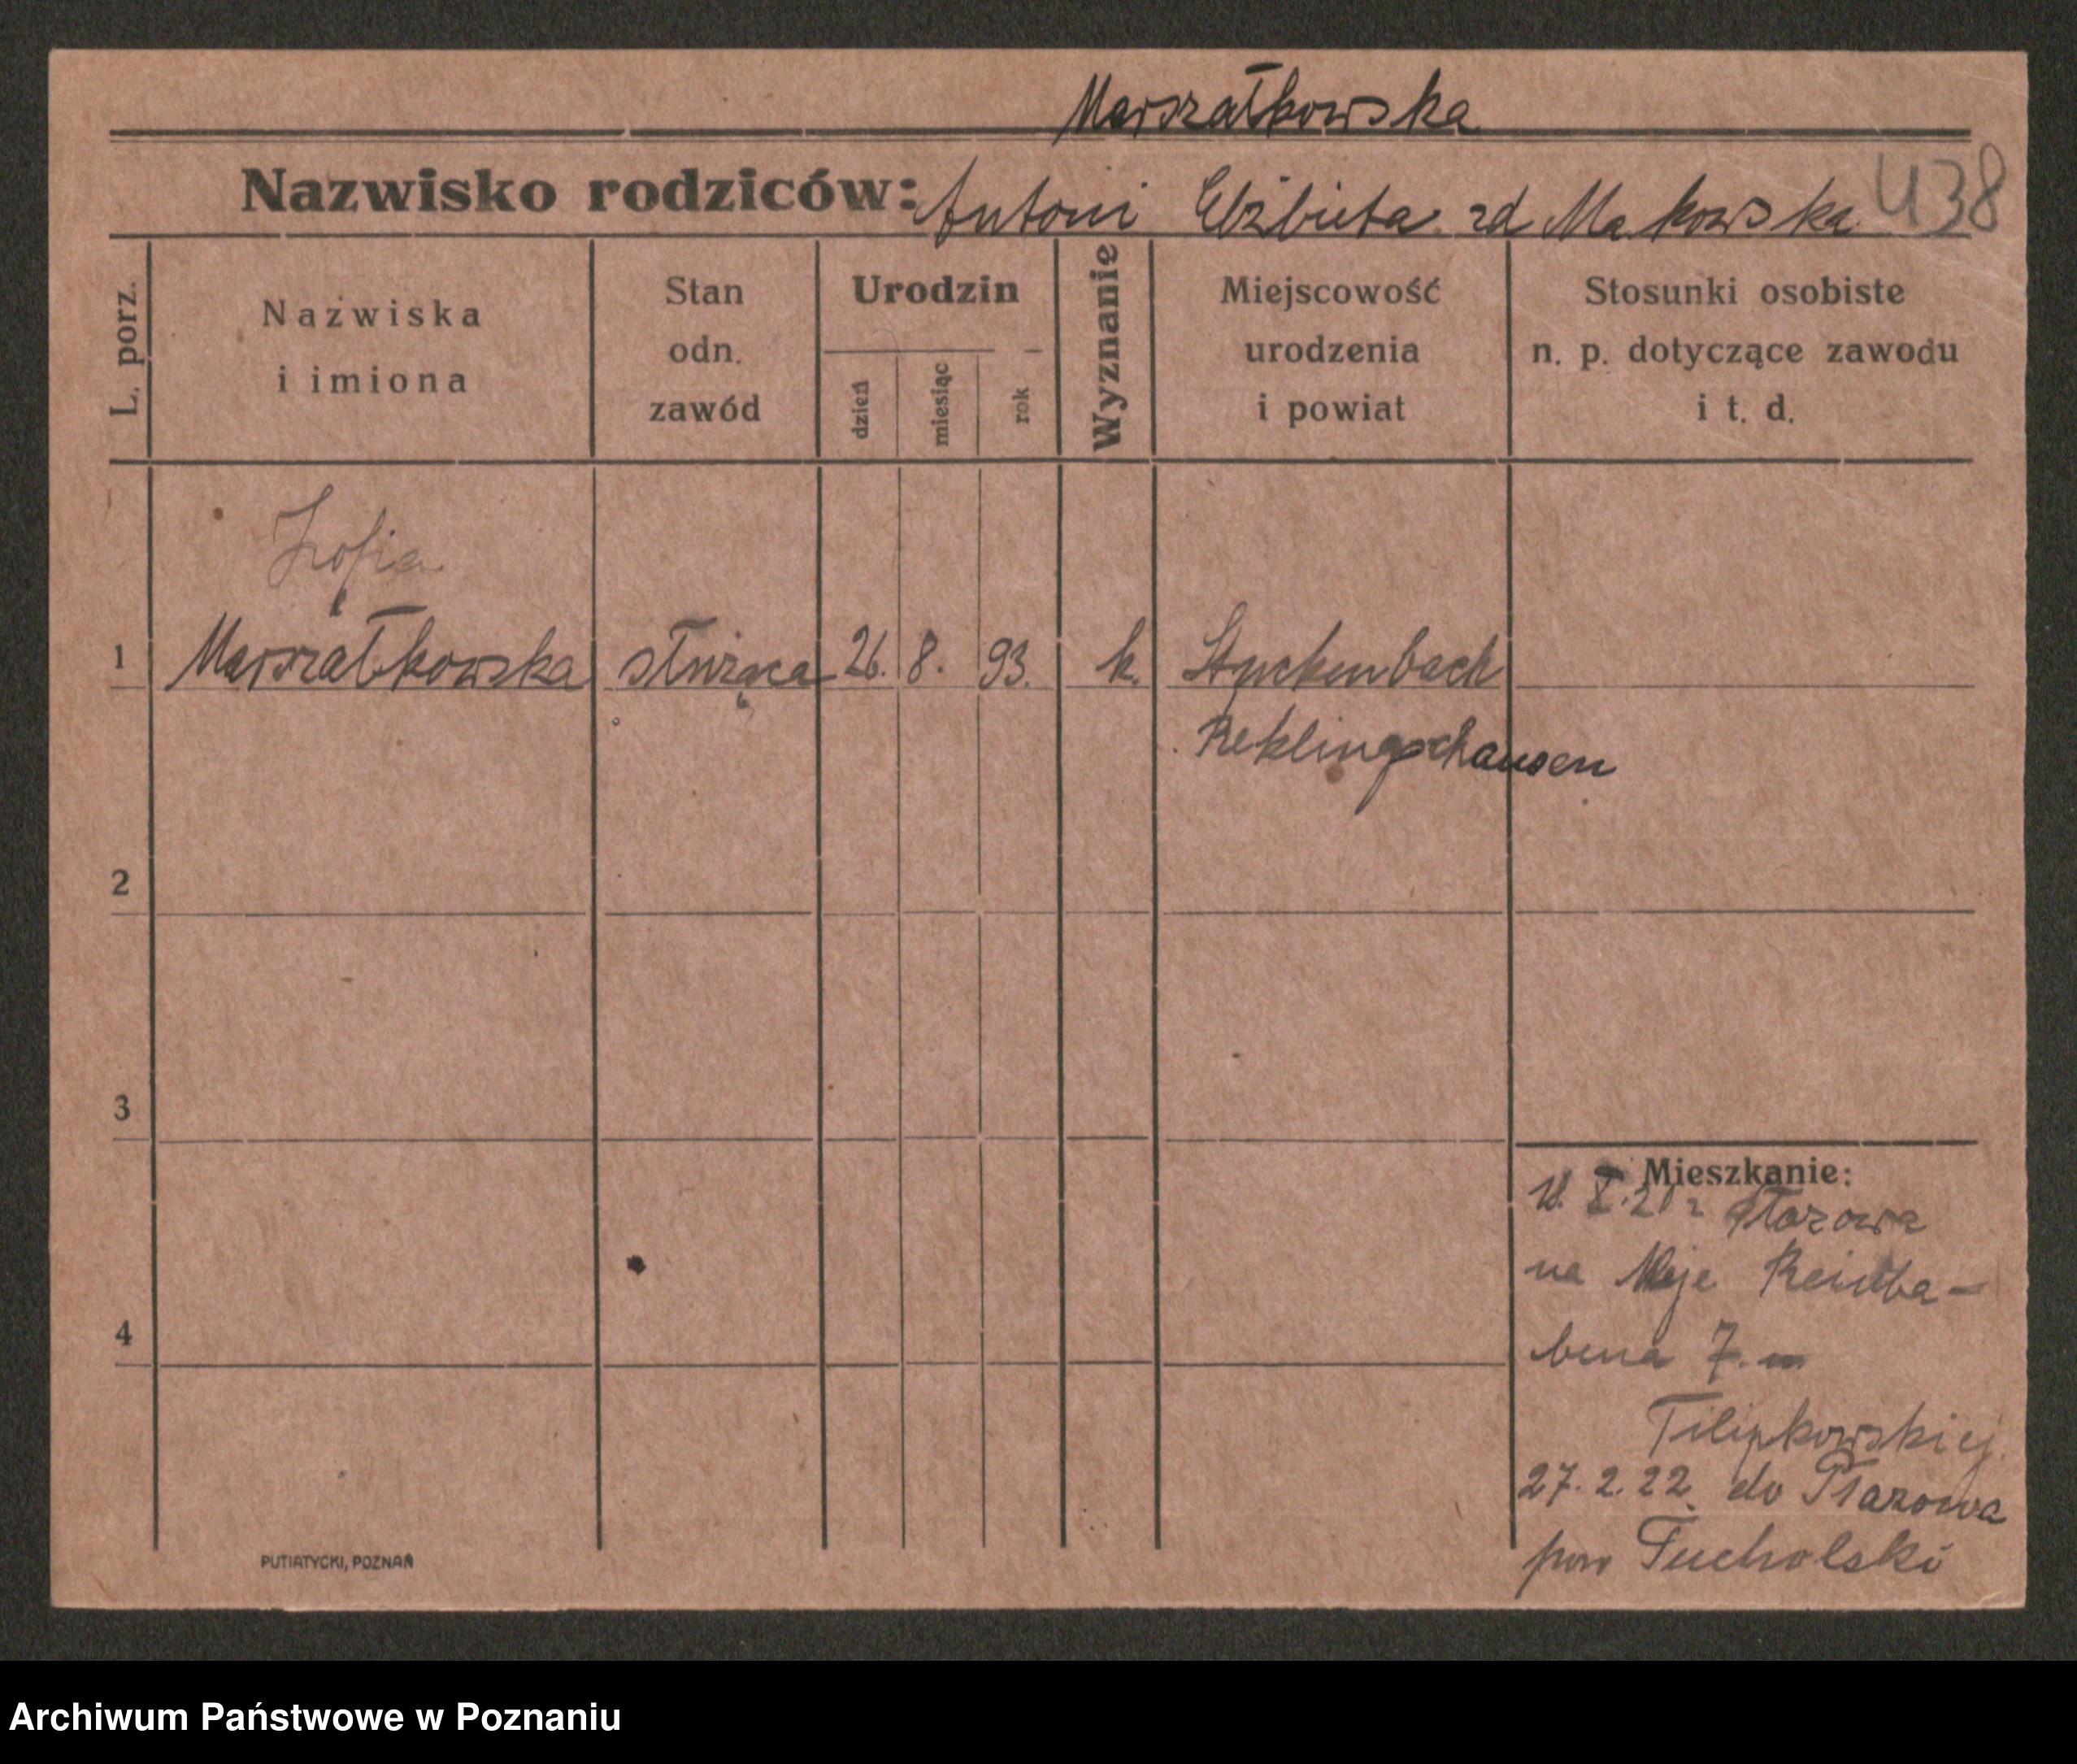 Marszałkowska
Nazwisko rodziców: Antoni Elżbieta zd Makowska 438
L. porz.
Nazwiska i imiona
Stan odn. zawód
Urodzin
dzień
miesiąc
rok
Wyznanie
Miejscowość urodzenia i powiat
Stosunki osobiste n. p. dotyczące zawodu i t. d.
Zofia
1 Marszałkowska służąca 26. 8. 93. k. Styckenbach
Reklingschausen
2
3
Mieszkanie:
X. 21 z
na Reidba-
4
bena 7.
Filipkowskiej
27. 2. 22. do Płazowa
pow Tucholski
PUTIATYCKI, POZNAŃ
Archiwum Państwowe w Poznaniu